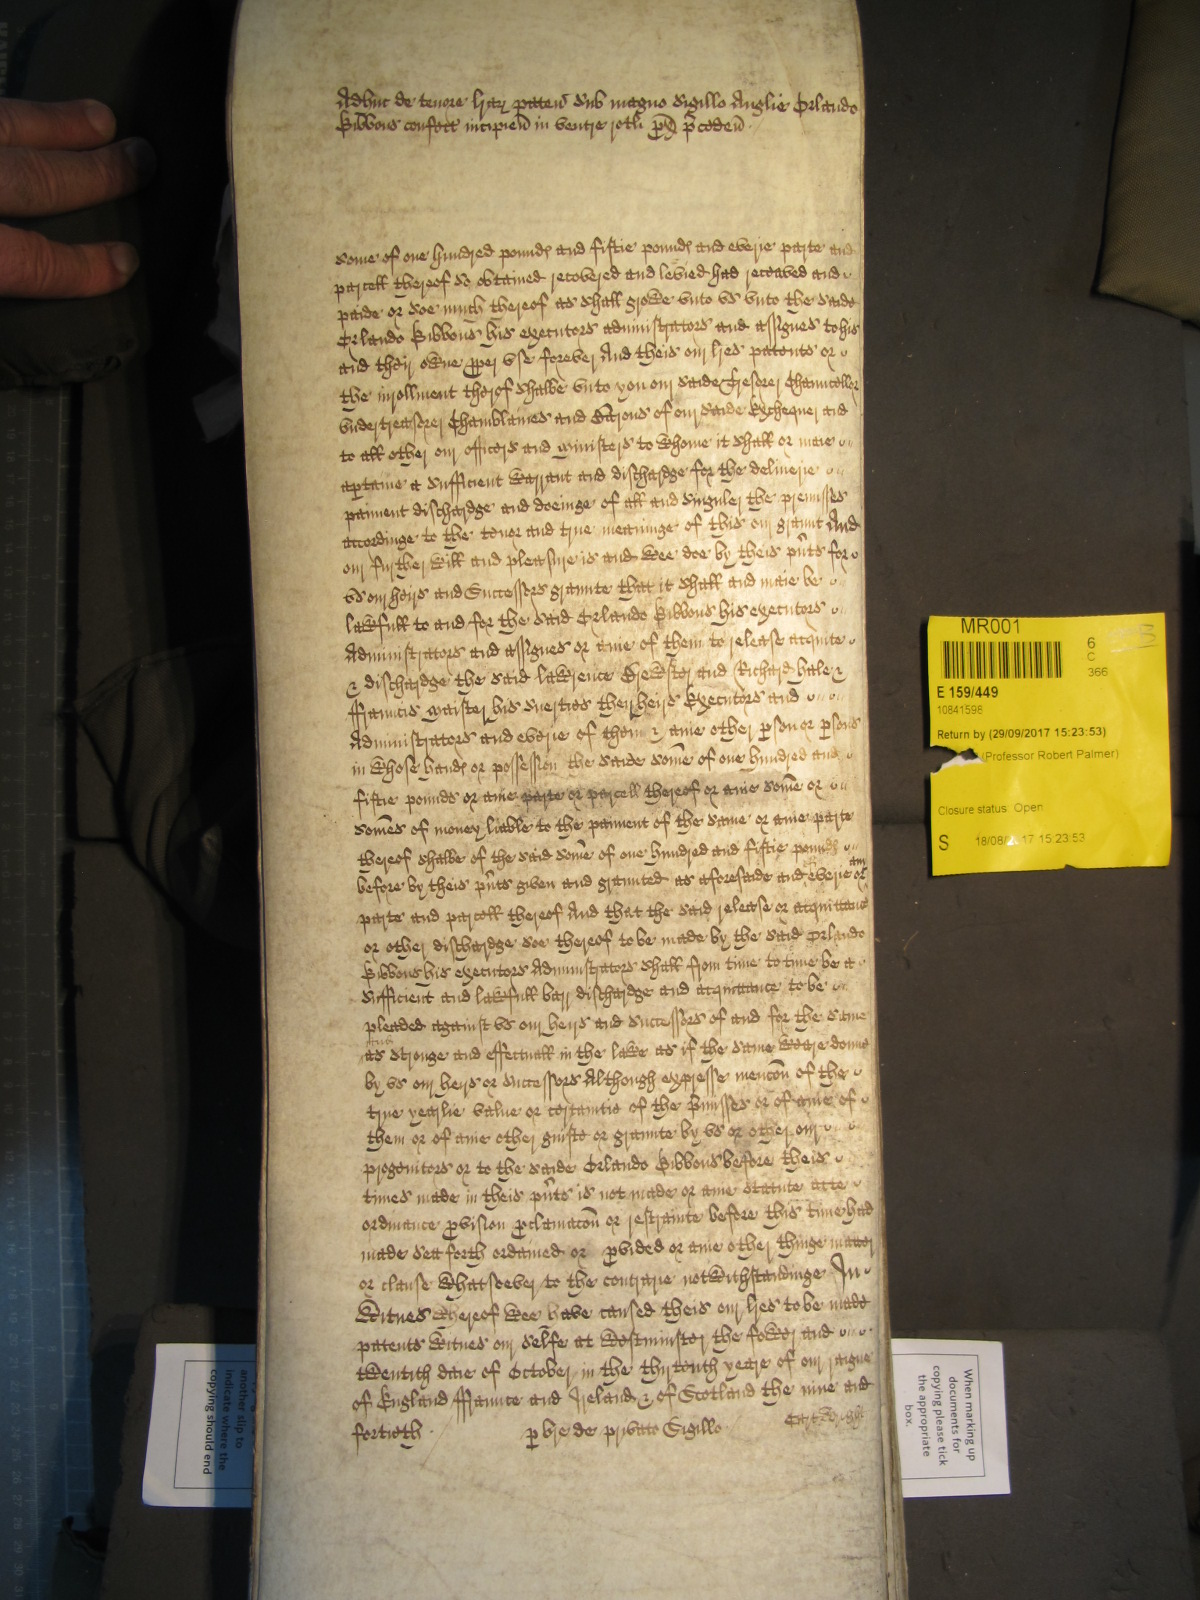 Adhuc de tenore lrar paten sub magno Sigillo Anglie Orlando
Gibbons confect incipien in ventre rotli preceden
some of one hundred pounds and fiftie pounds and everie parte and
parcell thereof so obtained recovered and levied had receaved and
paide or soe much thereof as shall growe unto us unto the saide
Orlando Gibbons his executors administrators and assignes to his
and their owne pper use forever And theis our lres patents or
the inrollment therof shalbe unto you our saide Tresorer Channceller
undertreasorer Chamblaines and Barons of our saide Exchequer and
to all other our officers and ministers to whome it shall or maie
aptaine a sufficient warrant and dischardge for the deliverie
paiment dischardge and doeinge of all and singuler the premisses
accordinge to the tenor and true meaninge of this our graunt And
our further will and pleasure is and wee doe by theis pnts for
us our heirs and Successors graunte that it shall and maie be
lawfull to and for the said Orlando Gibbons his executors
Administrators and assignes or anie of them to release acquite
& dischardge the said Lawrence Brewster and Richard hale
ffrancis his suerties their heirs Executors and
Administrators and everie of them & anie other pson or psons
in whose hands or possession the saide some of one hundred and
fiftie pounds or anie parte or parcell thereof or anie some or
somes of money liable to the paiment of the same or anie parte
thereof shalbe of the said some of one hundred and fiftie pounds
before by theis pnts given and graunted as aforesaide and everie or any
parte and parcell thereof And that the said release or acquittance
or other dischardge soe thereof to be made by the said Orlando
Gibbons his executors Administrators shall from time to time be a
sufficient and lawfull barr dischardge and acquittance to be
pleaded against us our heirs and successors of and for the same
as stronge and effectuall in the lawe as if the same weare donne
by us our heirs or successors Although expresse mencon of the
true yearlie value or certaintie of the pmisses or of anie of
them or of anie other guifte or graunte by us or other our
progenitors or to the saide Orlando Gibbons before theis
times made in theis pnts is not made or anie statute acte
ordinance pvision pclamacon or restrainte before this time had
made sett forth ordained or pvided or anie other thinge matter
or clause whatsoever to the contrarie notwithstandinge In
Witnes whereof wee have caused theis our lres to be made
patents Witnes our selfe at Westminster the fower and
twentith daie of October in the thirtenth yeare of our raigne
of England ffraunce and Ireland & of Scotland the nine and
fortieth p bre de privato Sigillo Cartwright
MR001
6
C
366
E 159/449
10841598
Return by (29/09/2017 15:23:53)
(Professor Robert Palmer)
Closure status Open
S 18/08/ 17 15:23:53
When marking up
documents for
copying please tick
the appropriate
box.
another slip to
indicate where the
copying should end